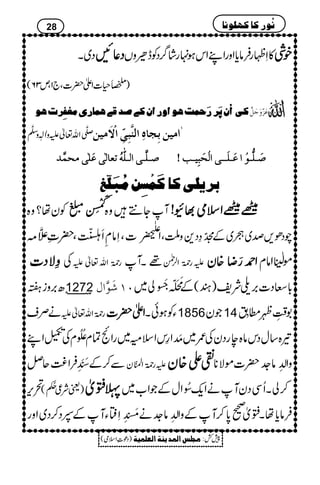 نور کا کھلونا
28
خوشی کا اظہار فرمایا اور اپنے اس ہونہار شاگرد کو ڈھیروں دعائیں دی۔
(ملخصاً حیاتِ اعلیٰ حضرت، ج ۱ ص ۶۳)
اللہ عزوجل کی اُن پَر رَحمت ہو اور ان کے صدقے ہماری مغفِرت ہو
اٰمین بِجاہِ النَّبِیِّ الْاَمین صلَّی اللہ تعالٰی علیہ واٰلہٖ وسلَّم
صَلُّوْا عَلَی الْحَبِیب ! صلَّی اللہُ تعالٰی عَلٰی محمَّد
بریلی کا کَمْسِن مُبَلِّغ
میٹھے میٹھے اسلامی بھائیو! آپ جانتے ہیں وہ کَمْسِن مُبلِّغ کون تھا؟ وہ
چودھویں صدی ہجری کے مُجَدِّدِ دین و ملت، اعلیٰ حضرت، امامِ اہلِسُنَّت، حضرتِ علّامہ
مولٰینا امام احمد رضا خان علیہ رحمۃ الرحمٰن تھے۔ آپ رحمۃ اللہ تعالٰی علیہ کی وِلادت
باسعادت بریلی شریف (ہند) کے مَحَلّہ جَسولی میں ۱۰ شَوَّال 1272ھ بروز ہفتہ
بوقتِ ظہر مطابق 14 جون 1856 کو ہوئی۔ اعلیٰ حضرت رحمۃ اللہ تعالٰی علیہ نے صرف
تیرہ سال دس ماہ چار دن کی عمر میں مَدارسِ اسلامیہ میں رائج تمام عُلُوم کی تکمیل اپنے
والدِ ماجد حضرت مولانا نقی علی خان علیہ رحمۃ المنّان سے کر کے سَنَدِ فراغت حاصل
کر لی۔ اُسی دن آپ نے ایک سُوال کے جواب میں پہلا فتویٰ (یعنی شرعی حُکْم) تحریر
فرمایا تھا۔ فتویٰ صحیح پا کر آپ کے والدِ ماجد نے مَسْنَدِ اِفتاء آپ کے سپرد کر دی اور
پیش کش: مجلس المدینۃ العلمیۃ (دعوتِ اسلامی)